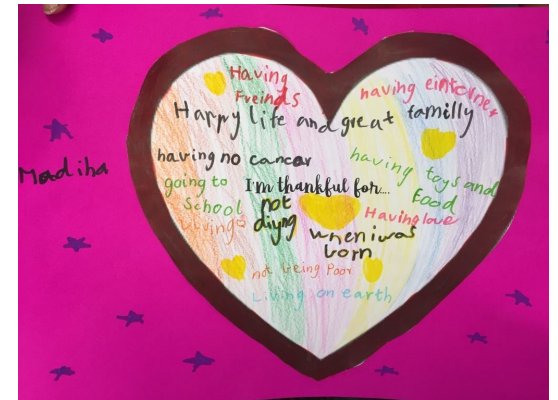 Madiha
Having
Freinds
having einterner
Happy life and great familly
having no cancar
having toys and
Food
going to
School
I'm thankful for...
not
diyng
Having love
Living
when i was
born
not being Poor
Living on earth